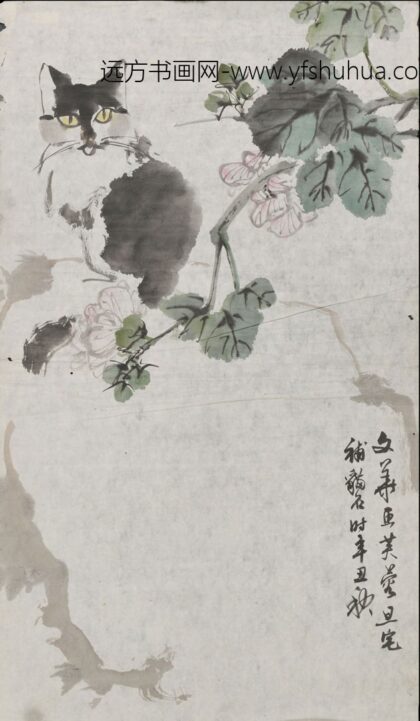 远方书画网-www.yfshuhua.co
文華画芙蓉旦宅
補貓石时辛丑秋